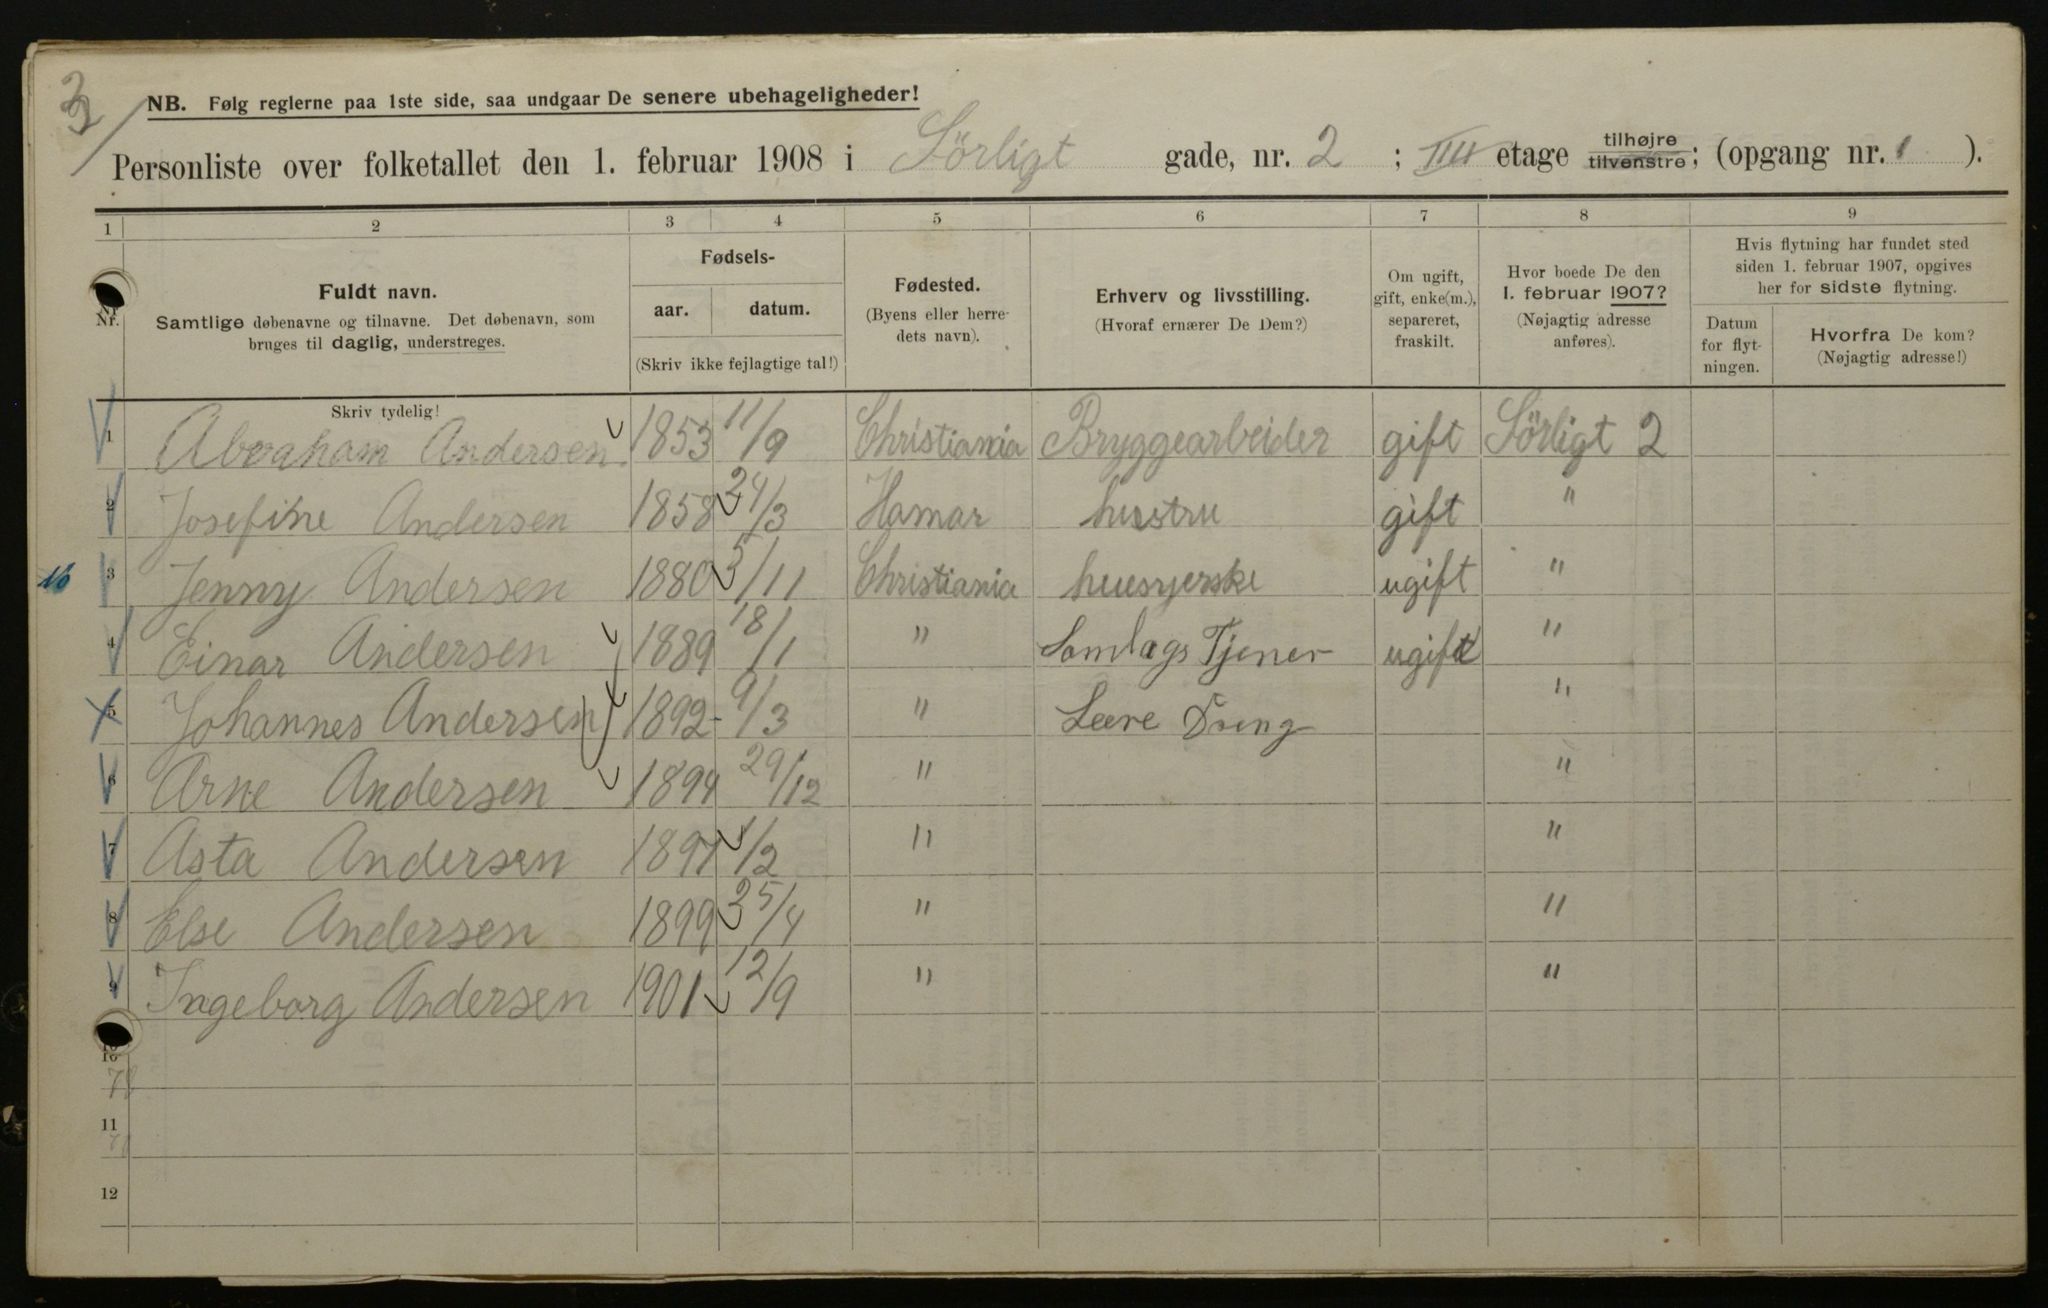 3
NB. Følg reglerne paa 1ste side, saa undgaar De senere ubehageligheder!
Personliste over folketallet den 1. februar 1908 i Sörligt gade, nr. 2 ; IIII etage tilhøjre tilvenstre; (opgang nr. 1 ).
1 2 3 4 5 6 7 8 9
Nr.
Fuldt navn.
Samtlige døbenavne og tilnavne. Det døbenavn, som
bruges til daglig, understreges.
Fødsels-
aar. datum.
(Skriv ikke fejlagtige tal!)
Fødested.
(Byens eller herre-
dets navn).
Erhverv og livsstilling.
(Hvoraf ernærer De Dem?)
Om ugift,
gift, enke(m.),
separeret,
fraskilt.
Hvor boede De den
1. februar 1907?
(Nøjagtig adresse
anføres).
Hvis flytning har fundet sted
siden 1. februar 1907, opgives
her for sidste flytning.
Datum
for flyt-
ningen.
Hvorfra De kom?
(Nøjagtig adresse!)
Skriv tydelig!
1 Abraham Andersen 1853 11/9 Christiania Bryggearbeider gift Sörligt 2
2 Josefine Andersen 1858 24/3 Hamar hustru gift "
3 Jenny Andersen 1880 5/11 Christiania huusyerske ugift "
4 Einar Andersen 1889 18/1 " Samlags Tjener ugift "
5 Johannes Andersen 1892 9/3 " Lære Dreng "
6 Arne Andersen 1894 29/12 " "
7 Asta Andersen 1897 1/2 " "
8 Else Andersen 1899 25/4 " "
9 Ingeborg Andersen 1901 12/9 " "
10
11
12